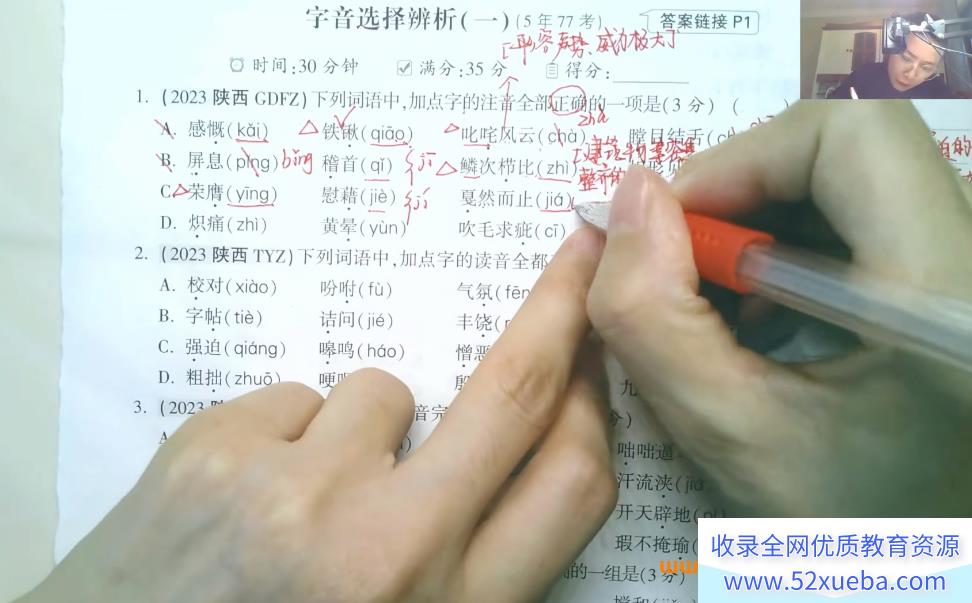 字音选择辨析(一)(5年77考) 答案链接P1
形容声势、威力极大
时间:30分钟 满分:35分 得分:
1. (2023陕西GDFZ)下列词语中,加点字的注音全部正确的一项是(3分) (
zhà
A. 感慨(kǎi) 铁锹(qiāo) 叱咤风云(chà) 瞠目结舌(ch
B. 屏息(pǐng) bǐng 稽首(qǐ) jī 鳞次栉比(zhì)
整齐
C. 荣膺(yīng) 慰藉(jiè) jí 戛然而止(jiá)
D. 炽痛(zhì) 黄晕(yùn) 吹毛求疵(cī)
2. (2023陕西TYZ)下列词语中,加点字的读音全都
A. 校对(xiào) 吩咐(fù) 气氛(fēn
B. 字帖(tiè) 诘问(jié) 丰饶(r
C. 强迫(qiáng) 嗥鸣(háo) 憎恶
D. 粗拙(zhuō) 哽 殷
九
3. (2023陕 音完 分)
A.
咄咄逼
汗流浃(jiá
开天辟地(pì
瑕不掩瑜(
的一组是(3分)
收录全网优质教育资源
www.52xueba.com